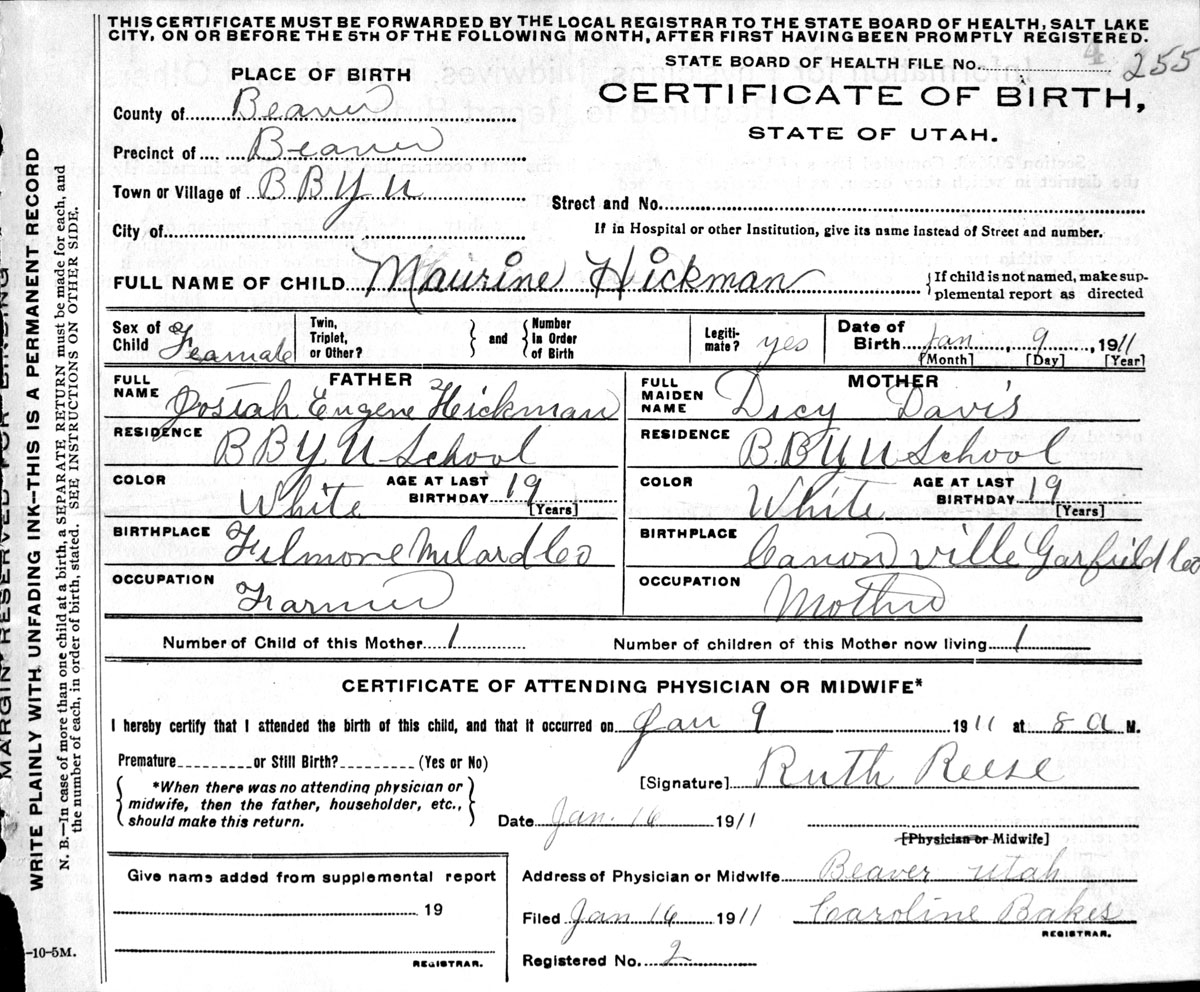 THIS CERTIFICATE MUST BE FORWARDED BY THE LOCAL REGISTRAR TO THE STATE BOARD OF HEALTH, SALT LAKE
CITY, ON OR BEFORE THE 5TH OF THE FOLLOWING MONTH, AFTER FIRST HAVING BEEN PROMPTLY REGISTERED.
STATE BOARD OF HEALTH FILE No. 4 255
PLACE OF BIRTH
CERTIFICATE OF BIRTH,
STATE OF UTAH.
County of Beaver
Precinct of Beaver
Town or Village of B B Y U
Street and No.
City of
If in Hospital or other Institution, give its name instead of Street and number.
FULL NAME OF CHILD Maurine Hickman
{If child is not named, make sup-
plemental report as directed
Sex of Child Feamale
Twin, Triplet, or Other?
and
Number In Order of Birth
Legiti-mate? yes
Date of Birth Jan 9, 1911
[Month] [Day] [Year]
FATHER
FULL NAME Josiah Eugene Hickman
RESIDENCE B B Y U School
COLOR White
AGE AT LAST BIRTHDAY 19 [Years]
BIRTHPLACE Filmore Milard Co
OCCUPATION Farmer
MOTHER
FULL MAIDEN NAME Dicy Davis
RESIDENCE B.B Y U School
COLOR White
AGE AT LAST BIRTHDAY 19 [Years]
BIRTHPLACE Canon ville Garfield Co
OCCUPATION Mother
Number of Child of this Mother 1
Number of children of this Mother now living 1
CERTIFICATE OF ATTENDING PHYSICIAN OR MIDWIFE*
I hereby certify that I attended the birth of this child, and that it occurred on Jan 9 1911 at 8 a M.
Premature or Still Birth? (Yes or No)
[Signature] Ruth Reese
*When there was no attending physician or
midwife, then the father, householder, etc.,
should make this return.
Date Jan. 16 1911
[Physician or Midwife]
Give name added from supplemental report
19
REGISTRAR.
Address of Physician or Midwife Beaver Utah
Filed Jan 16 1911 Caroline Bakes
REGISTRAR.
Registered No. 2
MARGIN RESERVED FOR BINDING
WRITE PLAINLY WITH UNFADING INK—THIS IS A PERMANENT RECORD
N. B.—In case of more than one child at a birth, a SEPARATE RETURN must be made for each, and
the number of each, in order of birth, stated. SEE INSTRUCTION ON OTHER SIDE.
-10-5M.